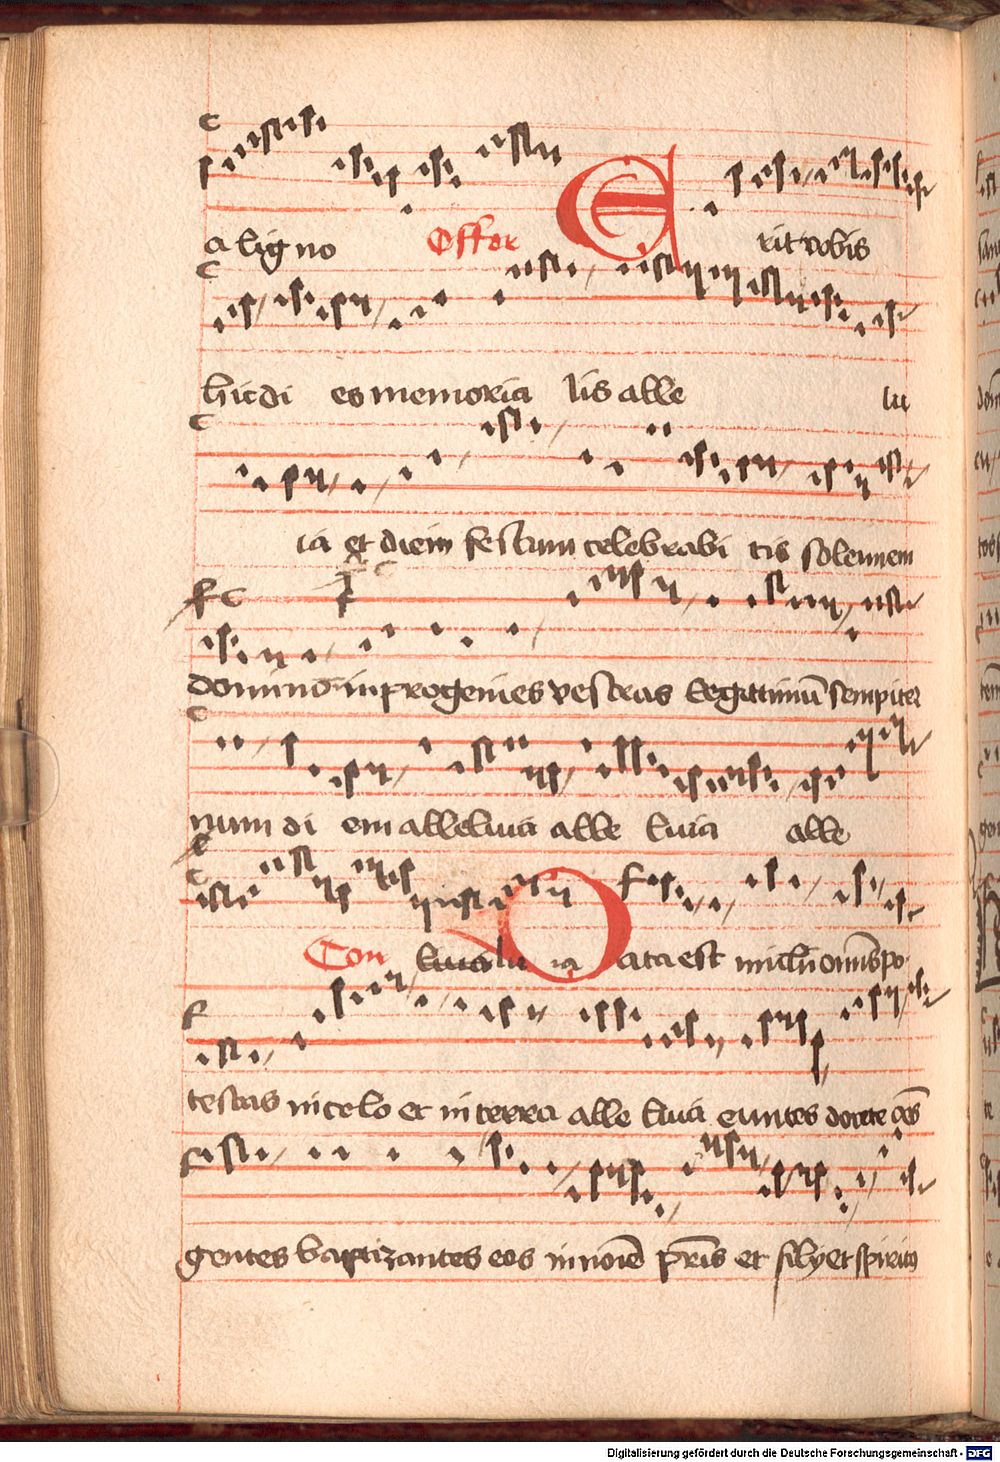 a lig no Offer E rit vobis
hic di es memoria lis alle lu
ia et diem festum celebrabi tis solennem
domino in progenies vestras legittimū sempiter
num di em alleluia alle luia alle
Con luia lu ia Data est michi om̄is po
testas in celo et in terra alle luia euntes docete oēs
gentes baptizantes eos in noīe pr̄is et filij et spiritus
Digitalisierung gefördert durch die Deutsche Forschungsgemeinschaft - DFG